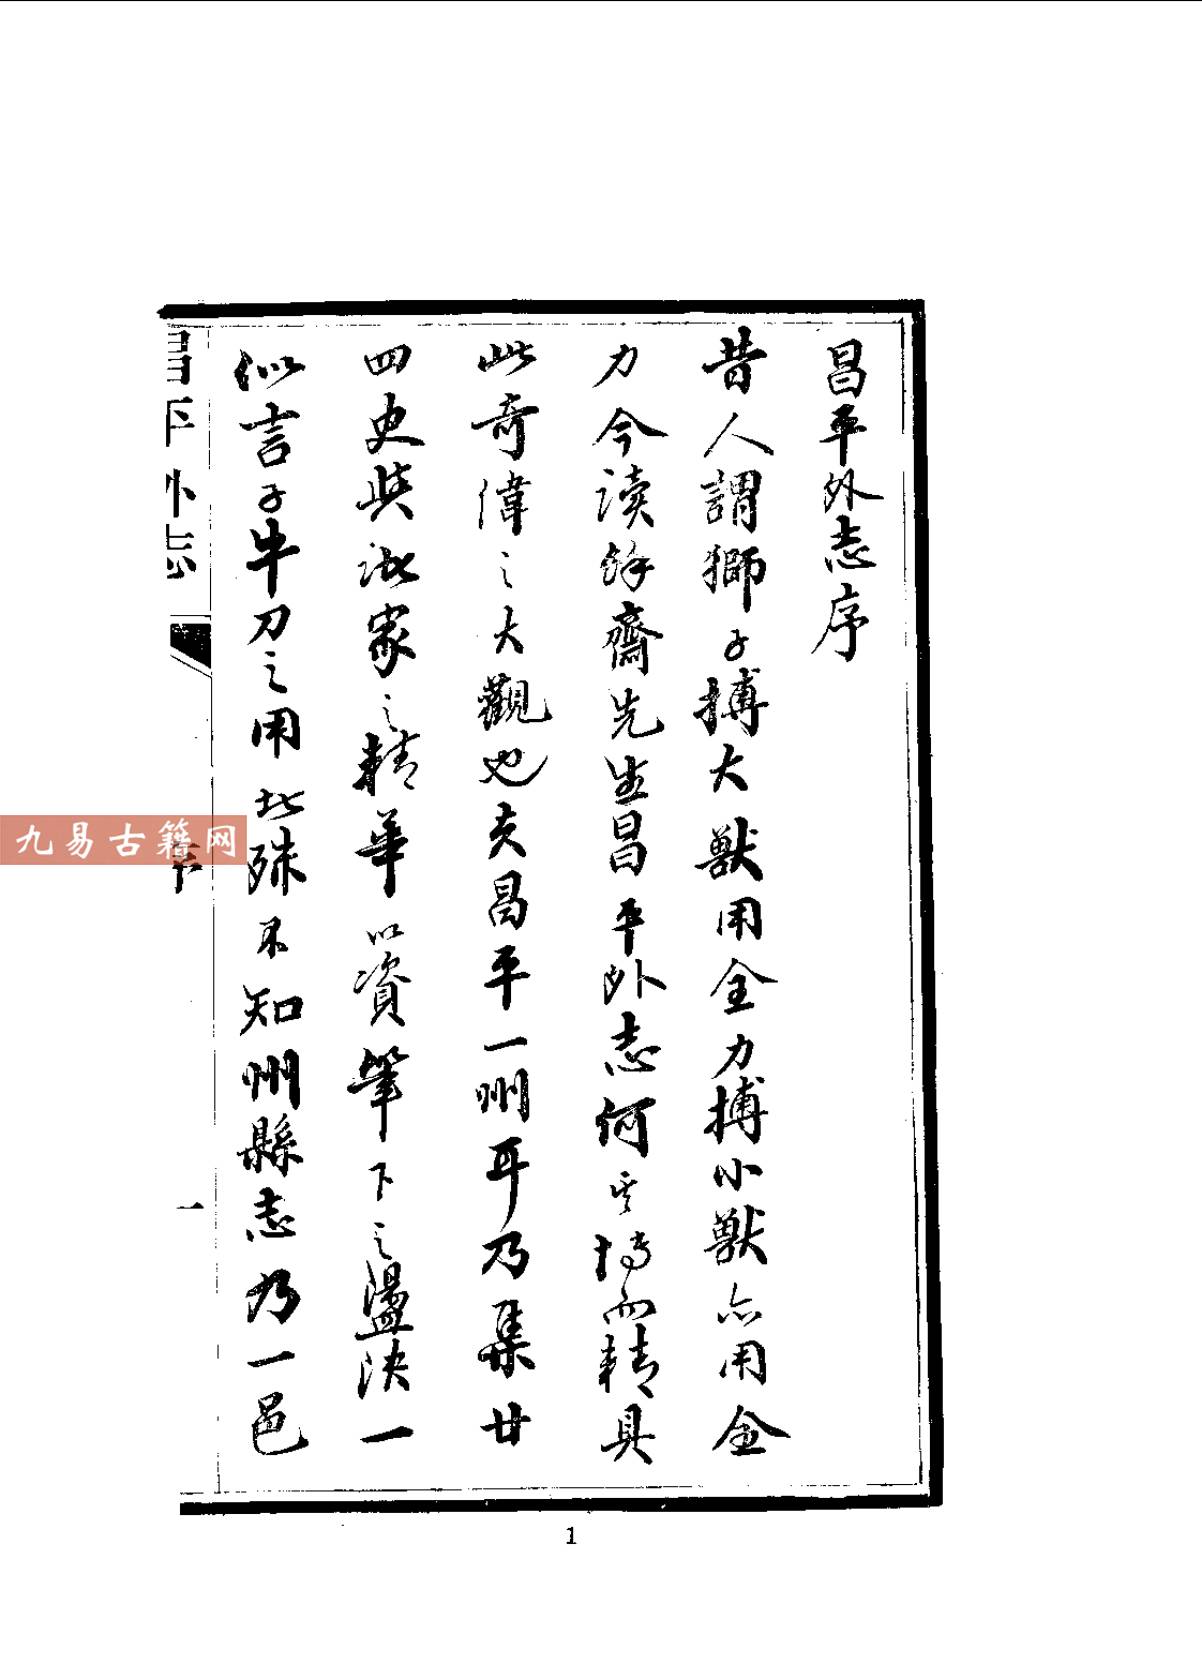 昌平外志序
昔人謂獅子搏大獸用全力搏小獸亦用全
力今读餘齋先生昌平外志何其博而精具
此奇偉之大觀也夫昌平一州耳乃集廿
四史與諸家之精華以資筆下之盪決一
似言子牛刀之用此殊不知州縣志乃一邑
昌平外志
序
一
九易古籍网
1